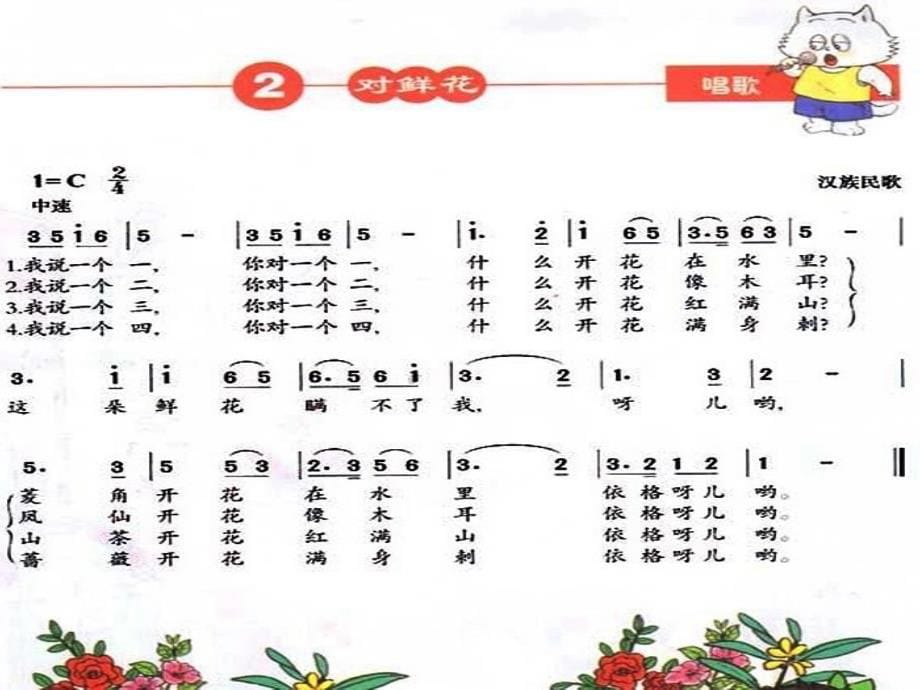 2 对鲜花 唱歌
1=C 2/4 汉族民歌
中速
3 5 i 6 | 5 - | 3 5 i 6 | 5 - | i. 2̇ | i 6 5 | 3.5 6 3 | 5 - |
1.我说一个 一, 你对一个 一, 什 么 开 花 在 水 里?
2.我说一个 二, 你对一个 二, 什 么 开 花 像 木 耳?
3.我说一个 三, 你对一个 三, 什 么 开 花 红 满 山?
4.我说一个 四, 你对一个 四, 什 么 开 花 满 身 刺?
3. i | i 6 5 | 6.5 6 i | 3. 2 | 1. 3 | 2 - |
这 朵 鲜 花 瞒 不 了 我, 呀 儿 哟,
5. 3 | 5 5 3 | 2.3 5 6 | 3. 2 | 3.2 1 2 | 1 - ‖
菱 角 开 花 在 水 里 依 格 呀 儿 哟。
凤 仙 开 花 像 木 耳 依 格 呀 儿 哟。
山 茶 开 花 红 满 山 依 格 呀 儿 哟。
蔷 薇 开 花 满 身 刺 依 格 呀 儿 哟。